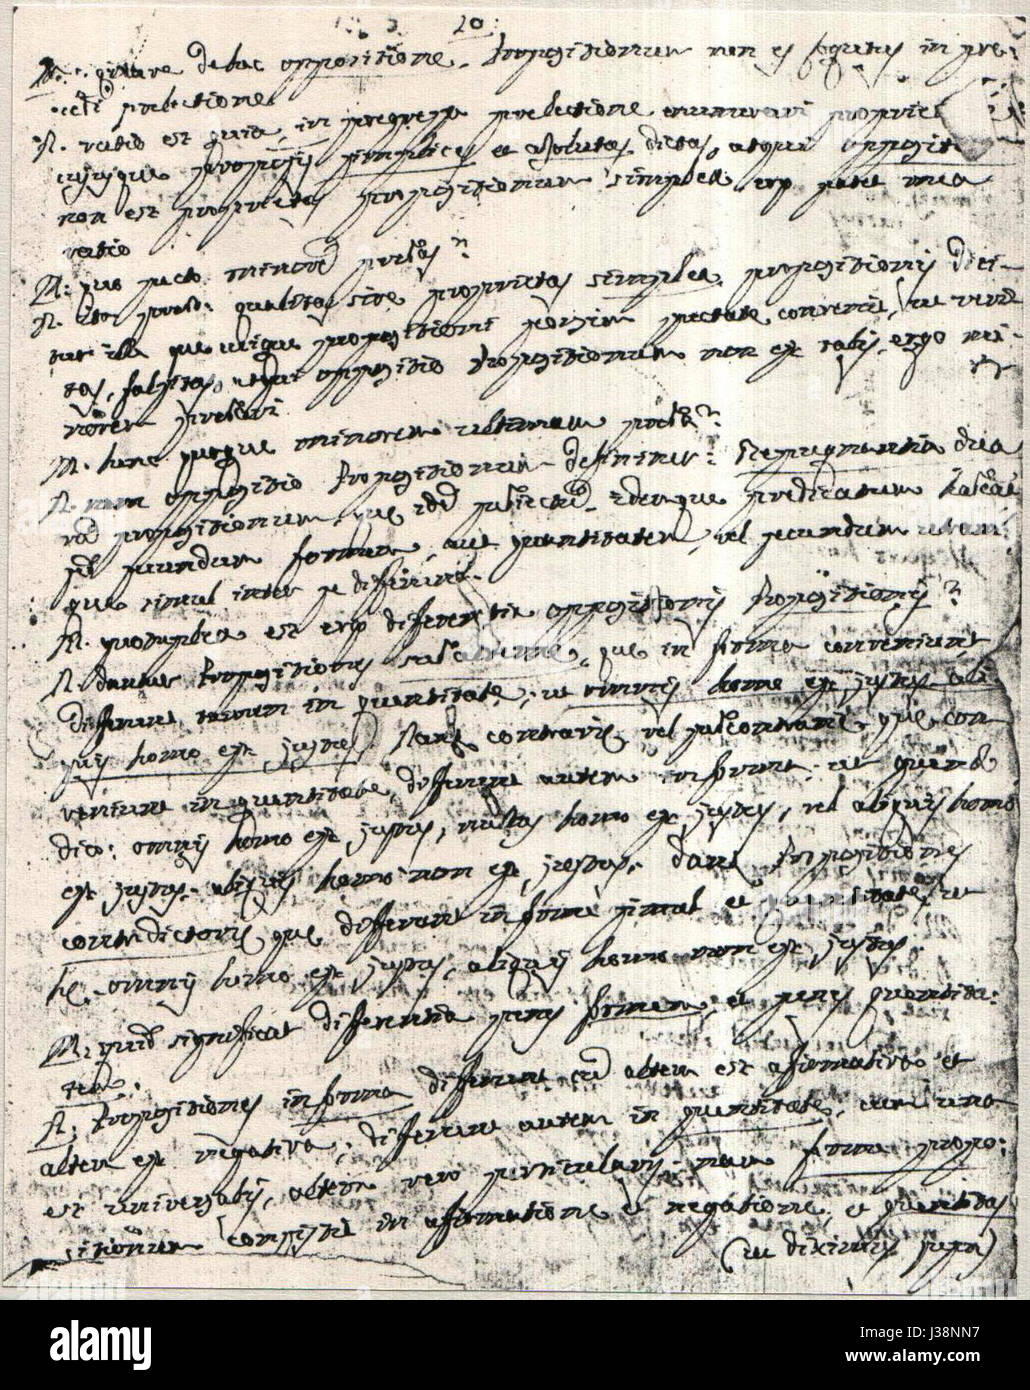 20
M. quare de hac oppositione propositionum non es in pre-
cedenti prolectione
R. ratio est quia, in prelectione enumeravi propriet
cujusque simplices et absolutas dictas, atqui opposit
non est proprietas propositionum simplex, ergo patet mea
ratio
M. quo pacto minorem probas?
R. ita probo: qualitas sive proprietas simplex propositionis dici-
tur illa que cuique propositioni conveniat, ut veri
tas, falsitas, atqui oppositio propositionum non est talis, ergo mi-
norem probavi
M. hanc minorem ultimam probas?
R. nam oppositio propositionum definitur: Repugnantia dua
rum propositionum, que idem subiectum, idemque predicatum
sed secundum formam, aut quantitatem, vel secundum utram
que simul inter se differunt.
M. quotuplex est ergo differentia oppositionis propositionis?
R. dantur propositiones que in forma conveniunt
differunt tamen in quantitate, ut omnis homo est justus, ali
quis homo est justus. dant contrarie, vel subcontrarie, que con
veniunt in quantitate, differunt autem in forma: ut quando
dico: omnis homo est justus, nullus homo est justus, vel aliquis homo
est justus, aliquis homo non est justus. dant propositiones
contradictorie, que differunt in forma simul et quantitate, ut
he. omnis homo est justus, aliquis homo non est justus.
M. quid significat differentia penes formam, et penes quantita-
tem?
R. Propositiones in forma differunt cum altera est afirmativa et
altera est negativa; differunt autem in quantitate, cum una
est universalis, altera vero particularis, nam forma propo-
sitionum consistit in afirmatione et negatione, et quantitas
(ut diximus supra)
alamy
Image ID: J38NN7
www.alamy.com